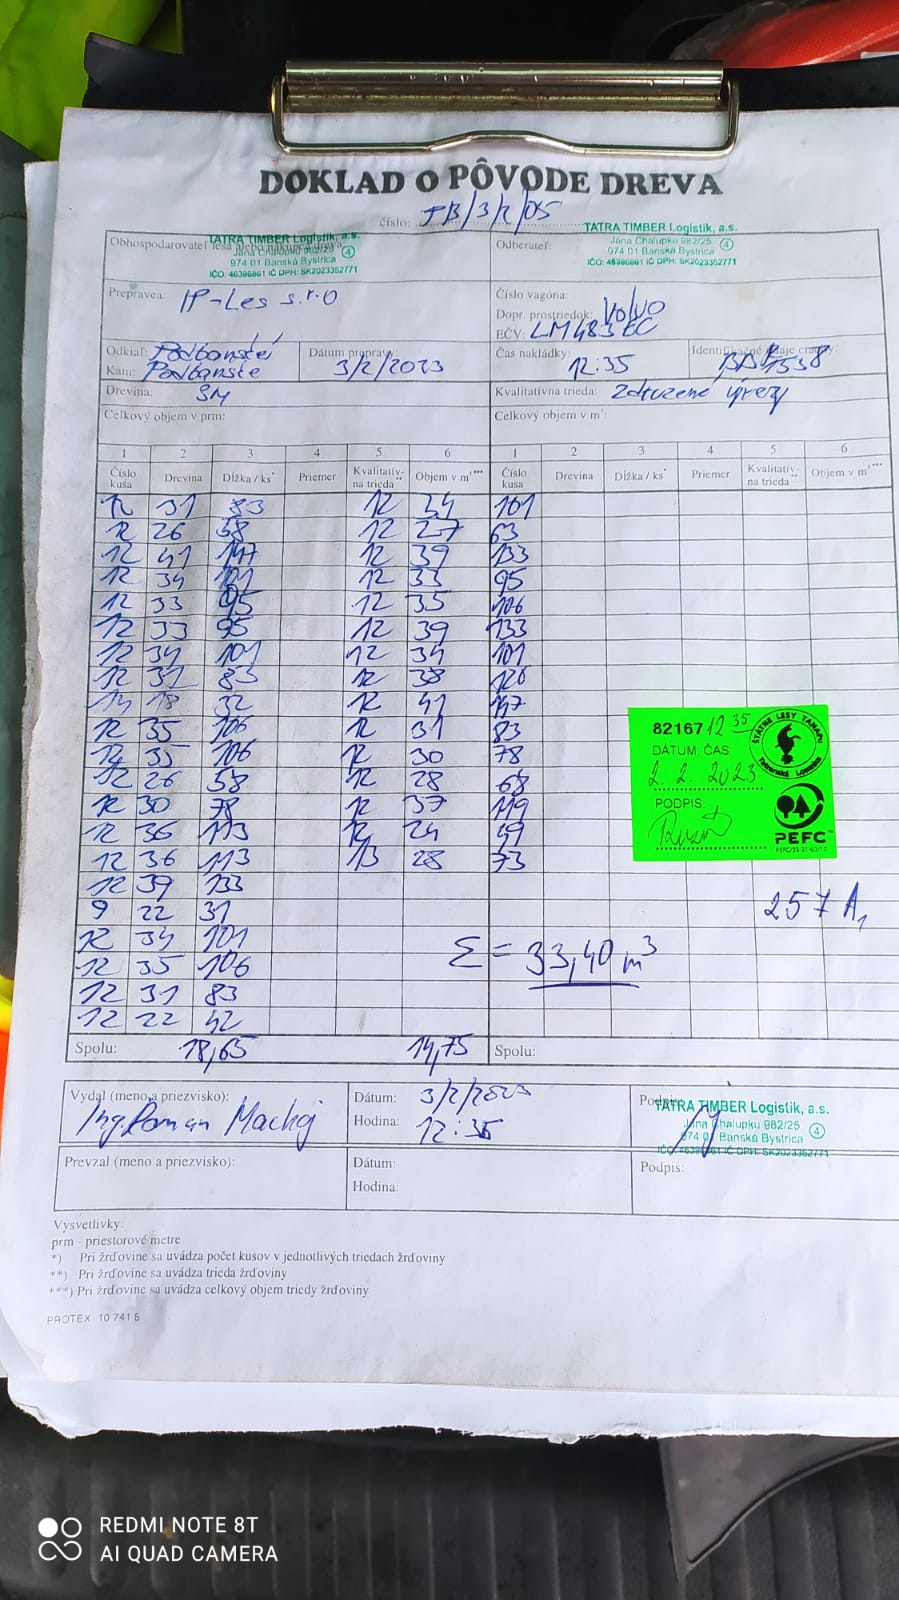 DOKLAD O PÔVODE DREVA
číslo: TB/3/2/05
Obhospodarovateľ lesa alebo nákupca dreva:
TATRA TIMBER Logistik, a.s.
Jána Chalupku 982/25 4
974 01 Banská Bystrica
IČO: 46396861 IČ DPH: SK2023352771
Odberateľ:
TATRA TIMBER Logistik, a.s.
Jána Chalupku 982/25 4
974 01 Banská Bystrica
IČO: 46396861 IČ DPH: SK2023352771
Prepravca: IP-Les s.r.o
Číslo vagóna:
Dopr. prostriedok: VOLVO
EČV: LM483EC
Odkiaľ: Podbanské
Kam: Podbanské
Dátum prepravy: 3/2/2023
Čas nakládky: 12:35
Identifikačné údaje ciachy:
Drevina: SM
Kvalitatívna trieda: Združené výrezy
Celkový objem v prm:
Celkový objem v m³:
1 2 3 4 5 6 1 2 3 4 5 6
Číslo kusa Drevina Dĺžka / ks* Priemer Kvalitatív- na trieda** Objem v m³*** Číslo kusa Drevina Dĺžka / ks* Priemer Kvalitatív- na trieda** Objem v m³***
12 31 83 12 34 101
12 26 58 12 27 63
12 41 147 12 39 133
12 34 101 12 33 95
12 33 95 12 35 106
12 33 95 12 39 133
12 34 101 12 34 101
12 31 83 12 38 126
14 18 32 12 41 147
12 35 106 12 31 83
12 35 106 12 30 78
12 26 58 12 28 68
12 30 78 12 37 119
12 36 113 12 24 49
12 36 113 13 28 73
12 39 133
9 22 31
12 34 101
12 35 106
12 31 83
12 22 42
82167 12 35
DÁTUM: ČAS:
2. 2. 2023
PODPIS:
ŠTÁTNE LESY TANAPU
Tatranská Lomnica
PEFC
257 A1
Σ = 33,40 m³
Spolu: 18,65 14,75 Spolu:
Vydal (meno a priezvisko):
Ing. Roman Machaj
Dátum: 3/2/2023
Hodina: 12:35
Podpis:
TATRA TIMBER Logistik, a.s.
Jána Chalupku 982/25 4
974 01 Banská Bystrica
IČO: 46396861 IČ DPH: SK2023352771
Prevzal (meno a priezvisko):
Dátum:
Hodina:
Podpis:
Vysvetlivky:
prm - priestorové metre
*) Pri žrďovine sa uvádza počet kusov v jednotlivých triedach žrďoviny
**) Pri žrďovine sa uvádza trieda žrďoviny
***) Pri žrďovine sa uvádza celkový objem triedy žrďoviny
PROTEX 10 741 5
REDMI NOTE 8T
AI QUAD CAMERA